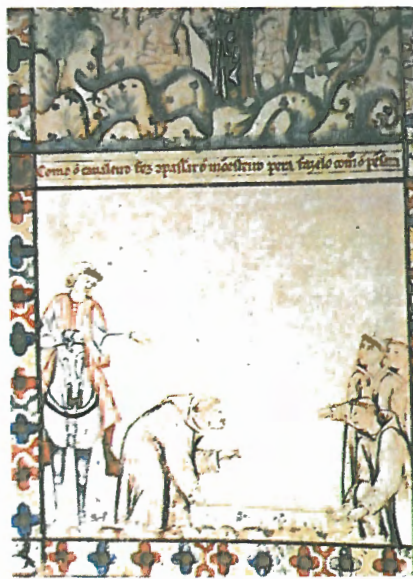 Como o caualeiro fez conpassar o moesteiro pera fazelo com o